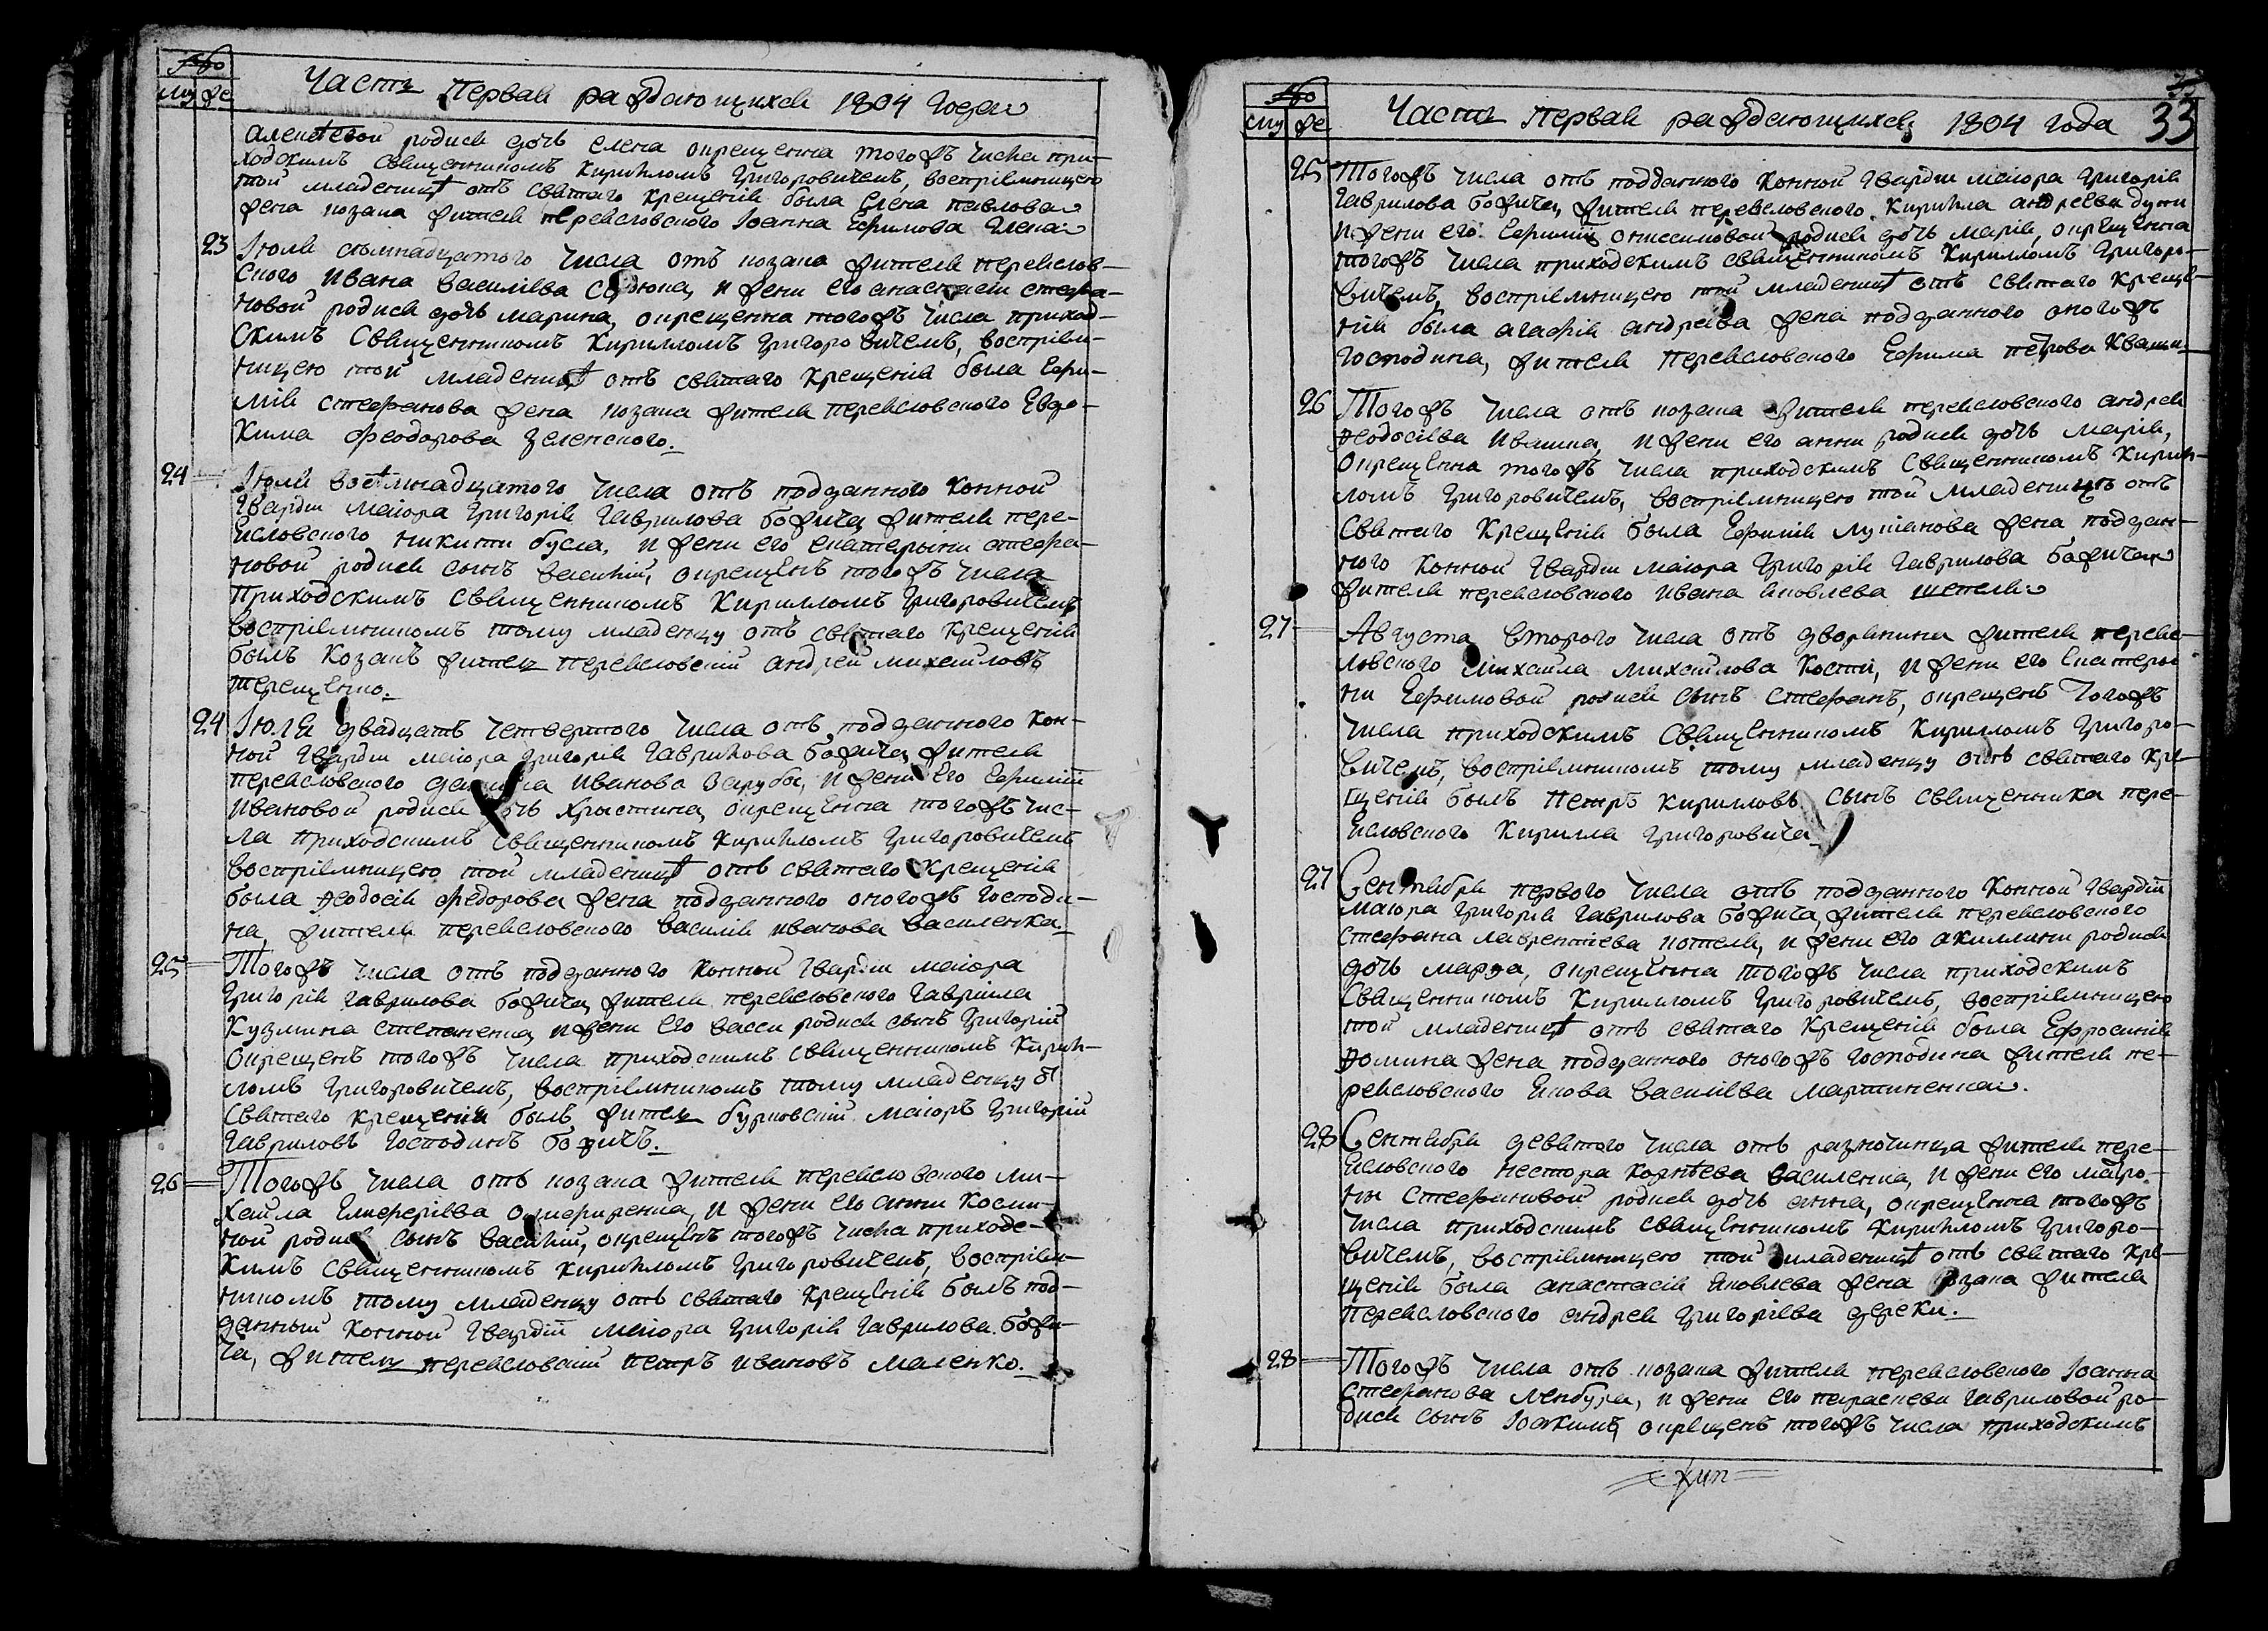 Часть Первая раждающихся 1804 года
му же
Алексѣевой родися дочь Елена окрещенна тогожъ числа при-
ходскимъ Священникомъ Кирилломъ Григоровичемъ, воспріемницею
той младеницѣ отъ Святаго крещенія была Елена павлова
жена козака жителя переясловского Іоанна Ефимова
23 Іюля семнадцатого числа отъ козака жителя переяслов-
ского Ивана Василіева и жени его анастасіи стефа-
новой родися дочь марина, окрещенна тогожъ числа приход-
скимъ Священникомъ Кирилломъ Григоровичемъ, воспріем-
ницею той младеницѣ отъ святаго крещенія была Ефи-
мія стефанова жена козака жителя переясловского Евдо-
кима Феодорова Зеленского.
24 Іюля восѣмнадцатого числа отъ подданного конной
Гвардіи маіора Григорія Гаврилова божича жителя пере-
ясловского никити бусла, и жени его екатерыни стефа-
новой родися сынъ василій, окрещенъ тогожъ числа
Приходскимъ Священникомъ Кирилломъ Григоровичемъ
воспріемникомъ тому младенцу отъ святаго крещенія
былъ козакъ житель переясловскій андрей михайловъ
терещенко.
24 Іюля двадцать четвертого числа отъ подданного кон-
ной Гвардіи маіора Григорія Гаврилова божича жителя
переясловского Иванова Зарубы, и жени его Ефиміи
Ивановой родися дочь христина, окрещенна тогожъ чис-
ла приходскимъ священникомъ Кирилломъ Григоровичемъ
воспріемницею той младеницѣ отъ святаго крещенія
была Ѳеодосія Федорова жена подданного оногожъ господи-
на, жителя переясловского василія иванова василенка.
25 Тогожъ числа отъ подданного конной Гвардіи маіора
Григорія Гаврилова божича жителя переясловского Гавріила
Кузмина степаненка, и жени его васси родися сынъ Григорій
окрещенъ тогожъ числа приходскимъ священникомъ Кирил-
ломъ Григоровичемъ, воспріемникомъ тому младенцу ѿ
святаго крещенія былъ житель бурковскій маіоръ Григорій
Гавриловъ Господинъ божичъ.
26 Тогожъ числа отъ козака жителя переясловского ми-
хайла Елиферіева и жени его анни косми-
ной родися сынъ василій, окрещенъ тогожъ числа приходс-
кимъ священникомъ кирилломъ Григоровичемъ, воспріем-
никомъ тому младенцу отъ святаго крещенія былъ под-
данный конной Гвардіи маіора Григорія Гаврилова божи-
ча, житель переясловскій петръ ивановъ маленко.
33
Часть Первая раждающихся 1804 года
му же
25 Тогожъ числа отъ подданного конной Гвардіи маіора Григорія
Гаврилова божича, жителя переясловского Кирилла андреева
и жени его Ефиміи онисимовой родися дочь марія, окрещенна
тогожъ числа приходскимъ священникомъ Кирилломъ Григоро-
вичемъ, воспріемницею той младеницѣ отъ святаго креще-
нія была агафія андреева жена подданного оногожъ
господина, жителя Переясловского Ефима петрова
26 Тогожъ числа отъ козака жителя переясловского андрея
Ѳеодосіева Ивашка, и жени его анни родися дочь марія,
окрещенна тогожъ числа приходскимъ Священникомъ Кирил-
ломъ Григоровичемъ, воспріемницею той младеницѣ отъ
святаго крещенія была Ефимія лукіанова жена поддан-
ного конной Гвардіи маіора Григорія Гаврилова божича
жителя переясловского ивана яковлева
27 Августа второго числа отъ дворянина жителя переяс-
ловского михаила михайлова Кости, и жени его екатеры-
ни Ефимовой родися сынъ стефанъ, окрещенъ тогожъ
числа приходскимъ священникомъ Кирилломъ Григоро-
вичемъ, воспріемникомъ тому младенцу отъ святаго кре-
щенія былъ петръ кирилловъ сынъ священника пере-
ясловского Кирилла григоровича
27 Сентября первого числа отъ подданного конной Гвардіи
маіора Григорія Гаврилова божича, жителя переясловского
стефана лаврентіева и жени его акилини родися
дочь марфа, окрещенна тогожъ числа приходскимъ
священникомъ Кирилломъ Григоровичемъ, воспріемницею
той младеницѣ отъ святаго крещенія была Ефросинія
Ѳомина жена подданного оногожъ господина жителя пе-
реясловского Якова василіева мартиненка.
28 Сентября девятого числа отъ разночинца жителя пере-
ясловского нестора василенка, и жени его мавро-
ни стефановой родися дочь анна, окрещенна тогожъ
числа приходскимъ священникомъ Кирилломъ Григоро-
вичемъ, воспріемницею той младеницѣ отъ святаго кре-
щенія была анастасія яковлева жена козака жителя
переясловского андрея Григоріева дереки.
28 Тогожъ числа отъ козака жителя переясловского Іоанна
стефанова и жени его параскеви гавриловой ро-
дися сынъ Іоакимъ, окрещенъ тогожъ числа приходскимъ